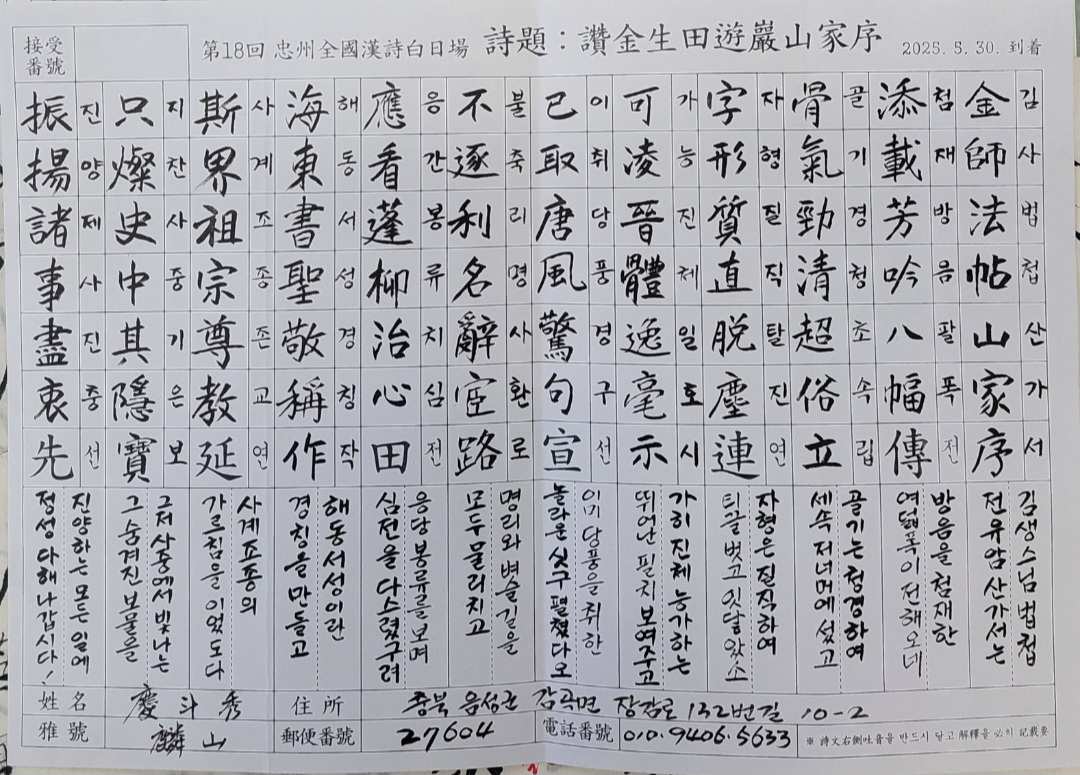 接受番號
第18回 忠州全國漢詩白日場 詩題 : 讚金生田遊巖山家序 2025. 5. 30. 到着
金師法帖山家序
김사법첩산가서
添載芳吟八幅傳
첨재방음팔폭전
骨氣勁清超俗立
골기경청초속립
字形質直脫塵連
자형질직탈진연
可凌晉體逸毫示
가능진체일호시
已取唐風驚句宣
이취당풍경구선
不逐利名辭宦路
불축리명사환로
應看蓬柳治心田
응간봉류치심전
海東書聖敬稱作
해동서성경칭작
斯界祖宗尊教延
사계조종존교연
只燦史中其隱寶
지찬사중기은보
振揚諸事盡衷先
진양제사진중선
김생스님법첩
전유암산가서는
방음을첨재한
여덟폭이전해오네
골기는청경하여
세속저너머에섰고
자형은질직하여
티끌벗고잇달았소
가히진체능가하는
뛰어난필치보여주고
이미당풍을취한
놀라운싯구펼쳤다오
명리와벼슬길을
모두물리치고
응당봉류를보며
심전을다스렸구려
해동서성이란
경칭을만들고
사계조종의
가르침을이었도다
그저사중에서빛나는
그숨겨진보물을
진양하는모든일에
정성다해나갑시다!
姓名 慶斗秀 住所 충북 음성군 감곡면 장감로 132번길 10-2
雅號 麟山 郵便番號 27604 電話番號 010.9406.5633 ※ 詩文右側吐音을 반드시 달고 解釋을 必히 記載要